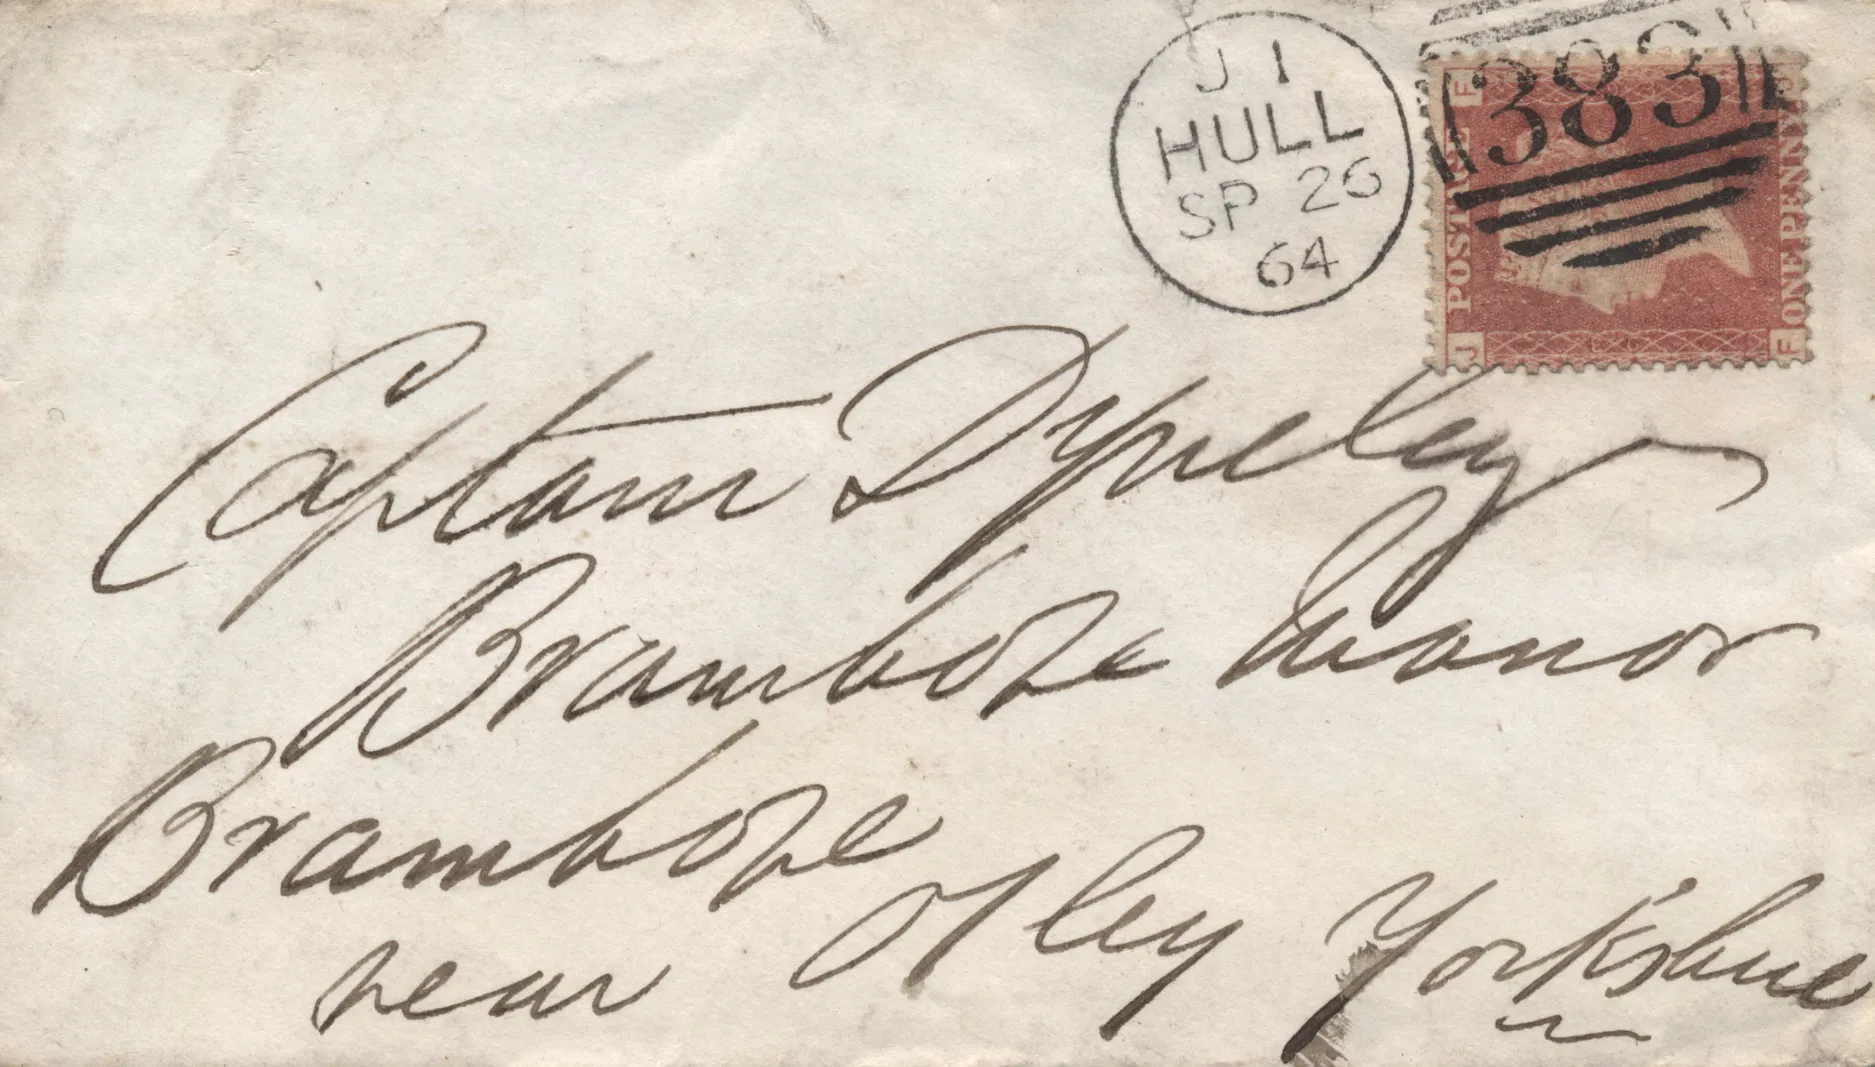 J 1
HULL
SP 26
64
383
F J
POSTAGE
ONE PENNY
J F
Captain Dyneley
Bramhope Manor
Bramhope
near Otley Yorkshire